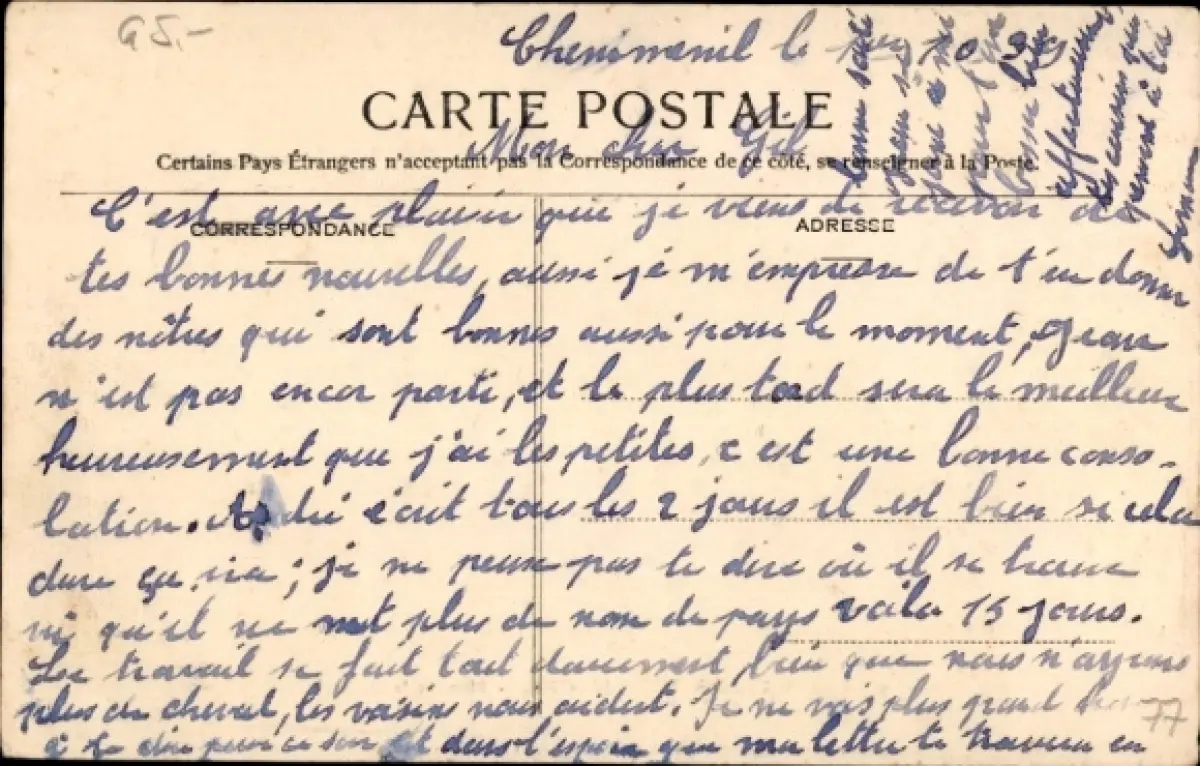 G5.-
Chenimenil le 10 39
CARTE POSTALE
Mon cher Gil
Certains Pays Étrangers n'acceptant pas la Correspondance de ce côté, se renseigner à la Poste.
C'est avec plaisir que je viens de recevoir de
CORRESPONDANCE
ADRESSE
tes bonnes nouvelles, aussi je m'empresse de t'en donner
des nôtres qui sont bonnes aussi pour le moment, Jean
n'est pas encor parti, et le plus tard sera le meilleur
heureusement que j'ai les petites, c est une bonne conso-
lation. André écrit tous les 2 jours il est bien si cela
dure ça ira ; je ne peux pas te dire où il se trouve
vu qu'il ne met plus de nom de pays voila 15 jours.
Le travail se fait tout doucement, bien que nous n'ayons
plus de cheval, les voisins nous aident. Je ne vois plus grand
77
à te dire pour ce soir et dans l'espoir que ma lettre te trouvera en
bonne santé
bien
affectueusement